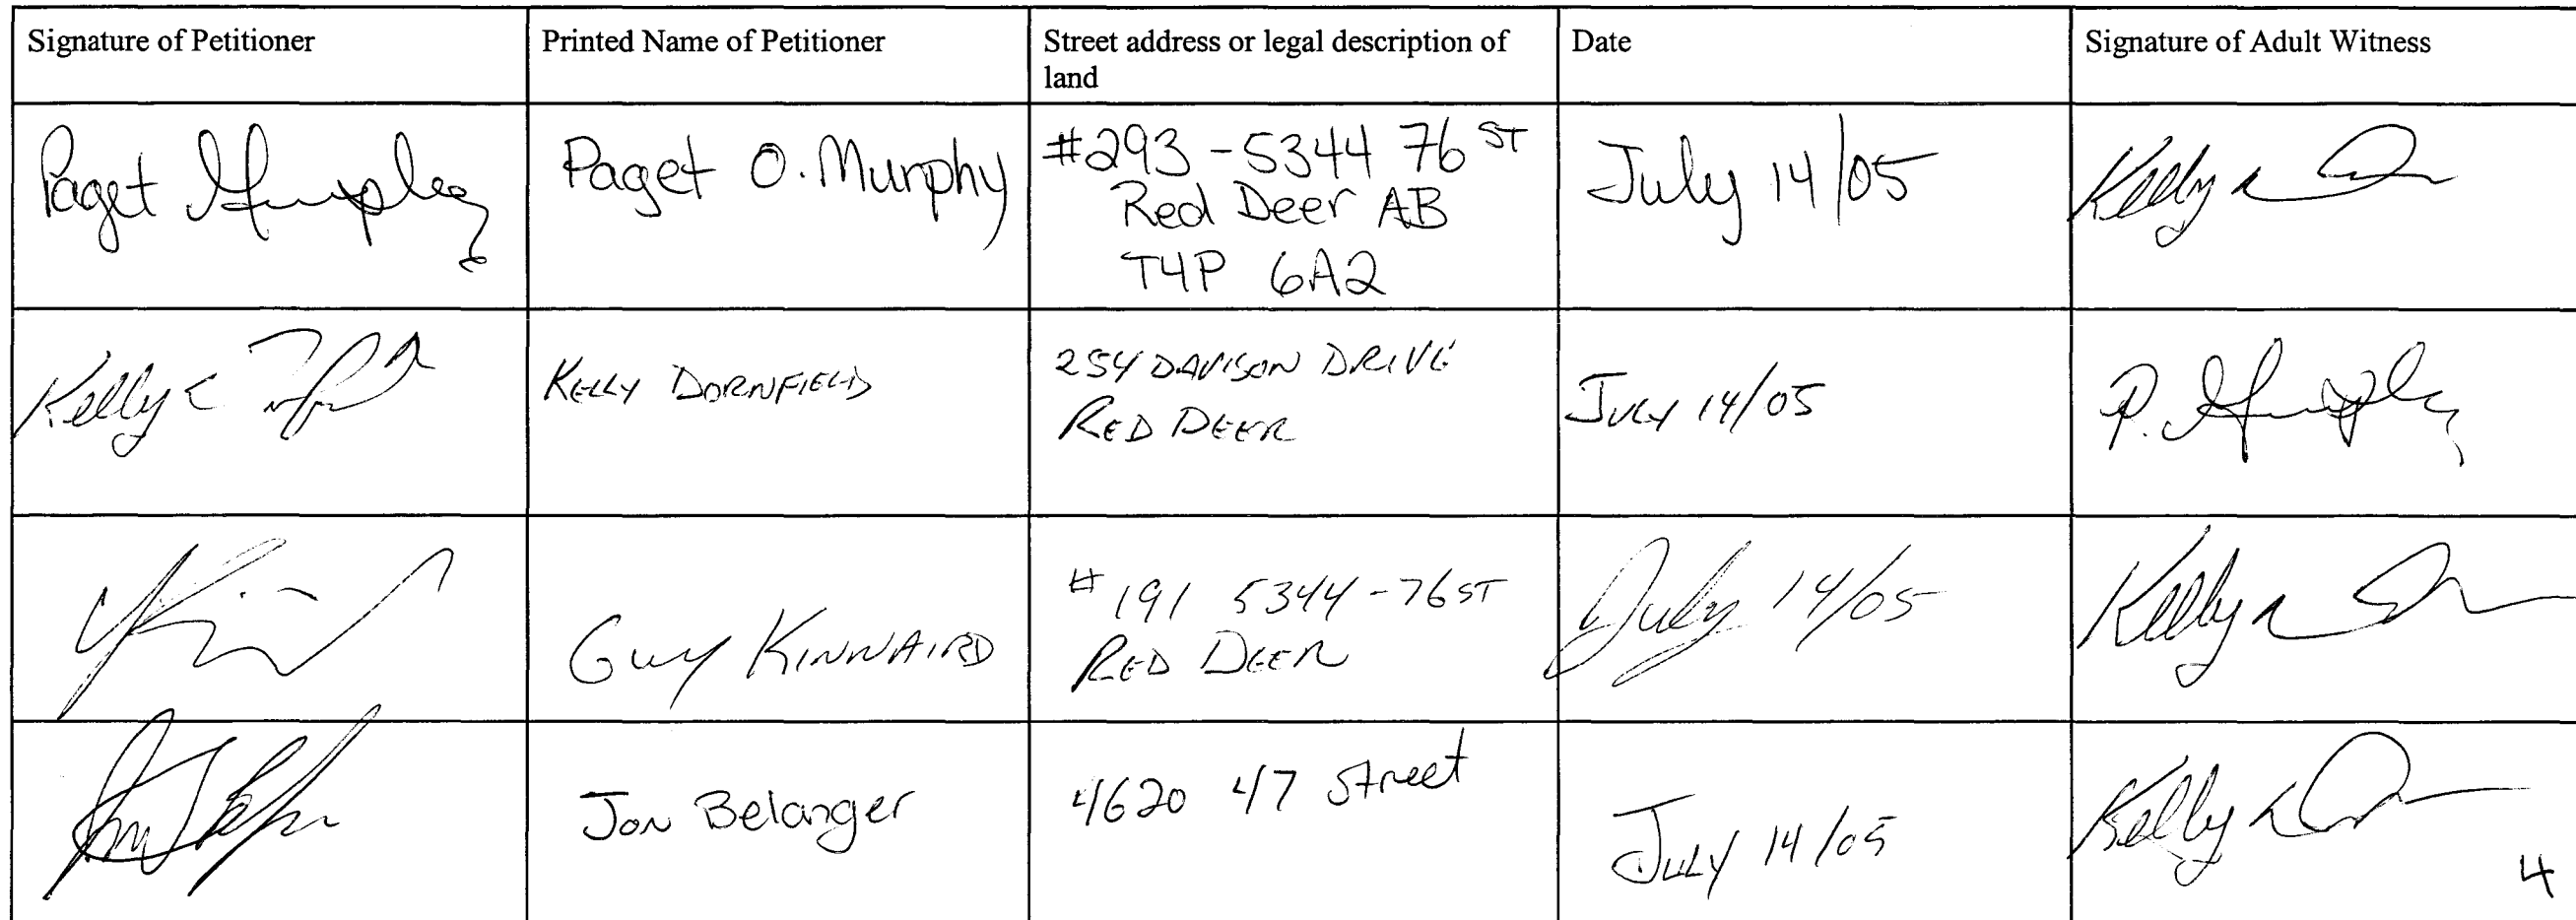 Signature of Petitioner
Printed Name of Petitioner
Street address or legal description of
land
Date
Signature of Adult Witness
Paget Murphy
Paget O. Murphy
#293 - 5344 76 ST
Red Deer AB
T4P 6A2
July 14/05
Kelly
Kelly
KELLY DORNFIELD
254 DAVISON DRIVE
RED DEER
JULY 14/05
P. Murphy
GUY KINNAIRD
# 191 5344 - 76 ST
RED DEER
July 14/05
Kelly
Jon Belanger
4620 47 Street
JULY 14/05
Kelly
4